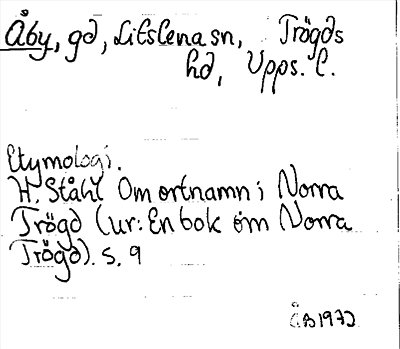 Åby, gd, Litslena sn, Trögds
hd, Upps. l.
Etymologi.
H. Ståhl Om ortnamn i Norra
Trögd (ur: En bok om Norra
Trögd). s. 9
ÅB 1972